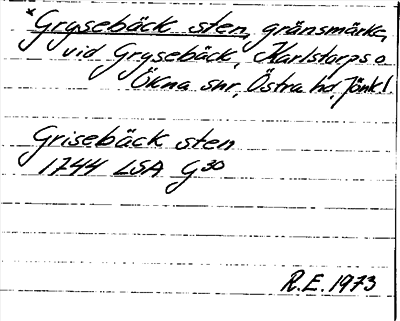 *Grysebäck sten, gränsmärke,
vid Grysebäck, Karlstorps o
Ökna snr, Östra hd, Jönk l.
Grisebäck sten
1744 LSA G30
R.E. 1973